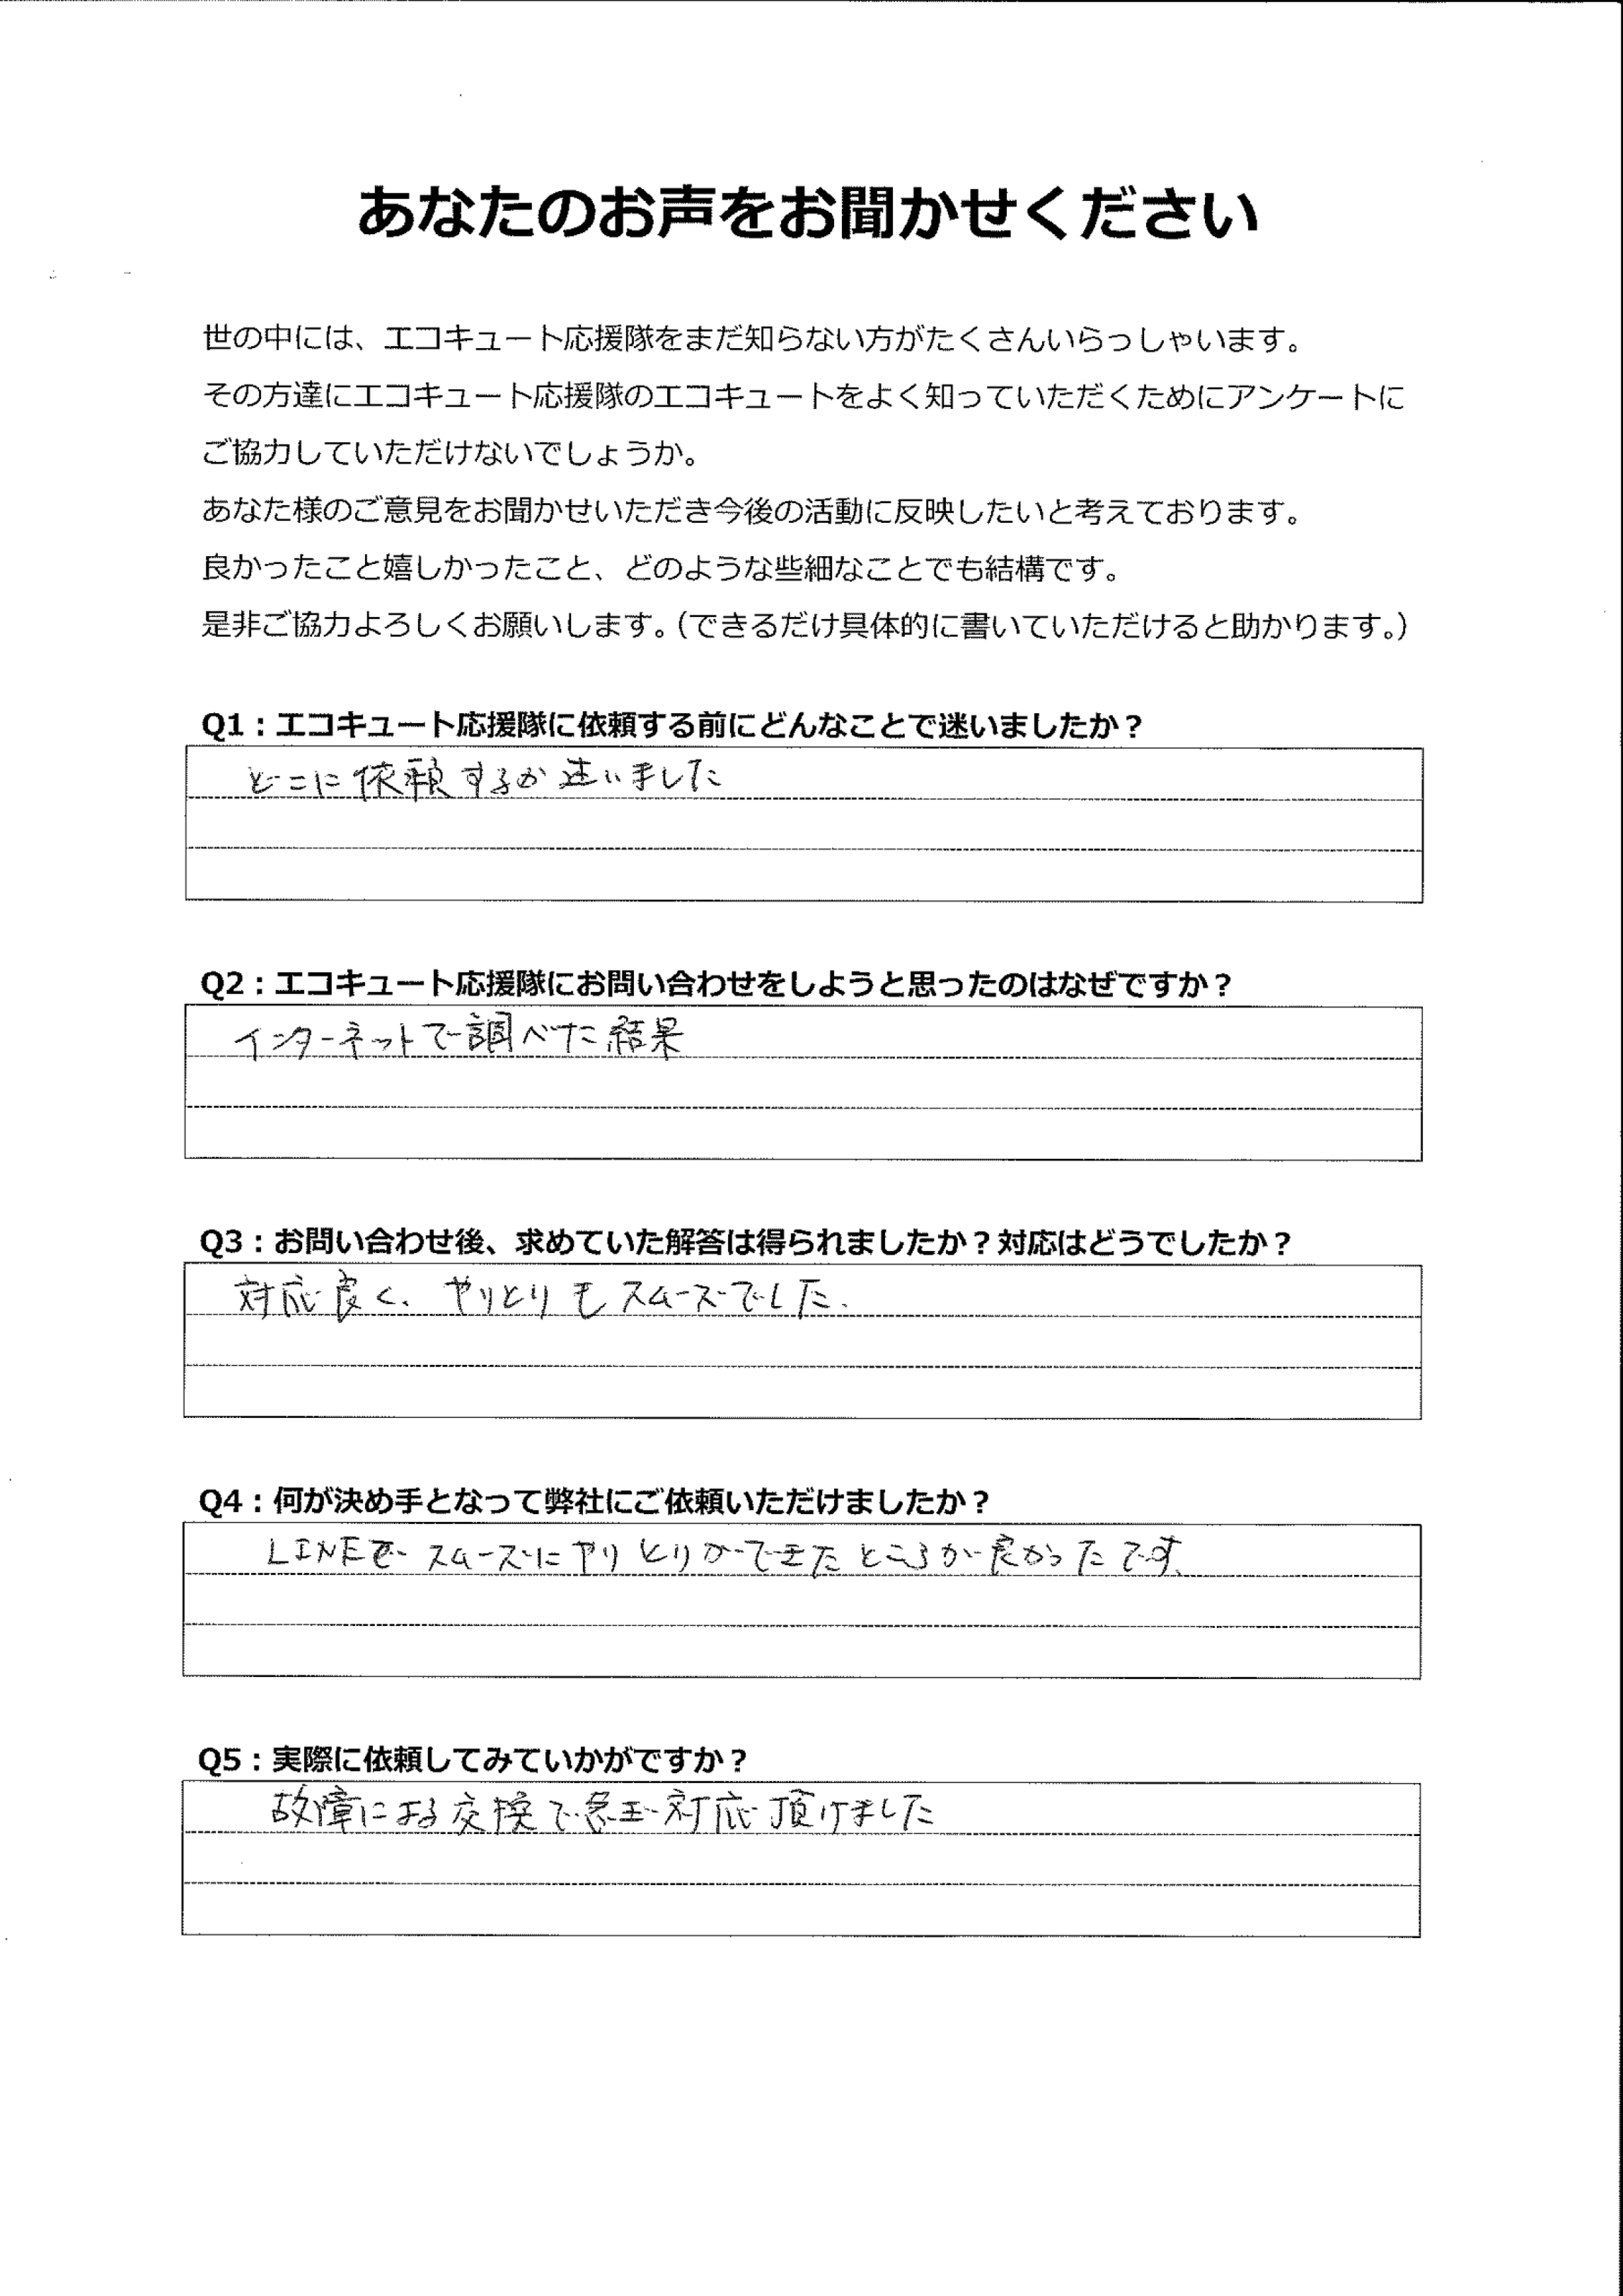 あなたのお声をお聞かせください
世の中には、エコキュート応援隊をまだ知らない方がたくさんいらっしゃいます。
その方達にエコキュート応援隊のエコキュートをよく知っていただくためにアンケートに
ご協力していただけないでしょうか。
あなた様のご意見をお聞かせいただき今後の活動に反映したいと考えております。
良かったこと嬉しかったこと、どのような些細なことでも結構です。
是非ご協力よろしくお願いします。（できるだけ具体的に書いていただけると助かります。）
Q1：エコキュート応援隊に依頼する前にどんなことで迷いましたか？
どこに依頼するか迷いました
Q2：エコキュート応援隊にお問い合わせをしようと思ったのはなぜですか？
インターネットで調べた結果
Q3：お問い合わせ後、求めていた解答は得られましたか？対応はどうでしたか？
対応良く、やりとりもスムーズでした.
Q4：何が決め手となって弊社にご依頼いただけましたか？
LINEでスムーズにやりとりができたところが良かったです、
Q5：実際に依頼してみていかがですか？
故障による交換で急玉対応頂けました